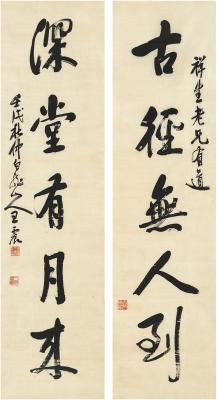 祥生老兄有道
古徑無人到
深堂有月來
壬戌杜仲白龍山人王震